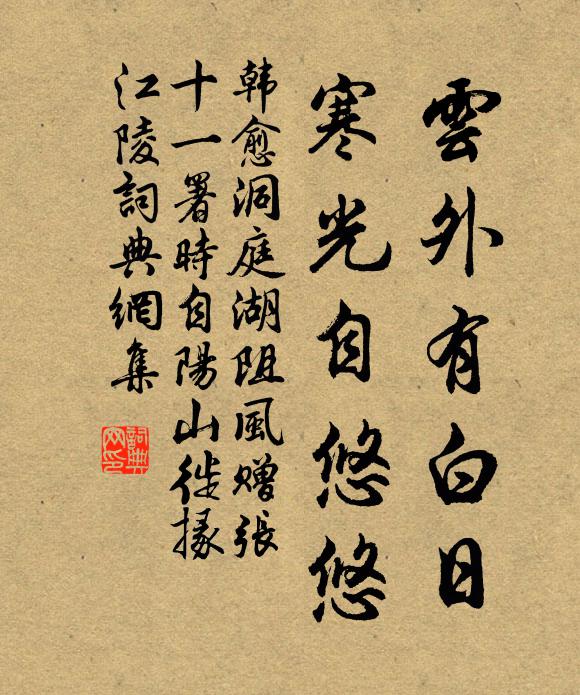 雲外有白日
寒光自悠悠
韩愈洞庭湖阻風赠張
十一署時自陽山徙掾
江陵詞典網集
詞典
网印